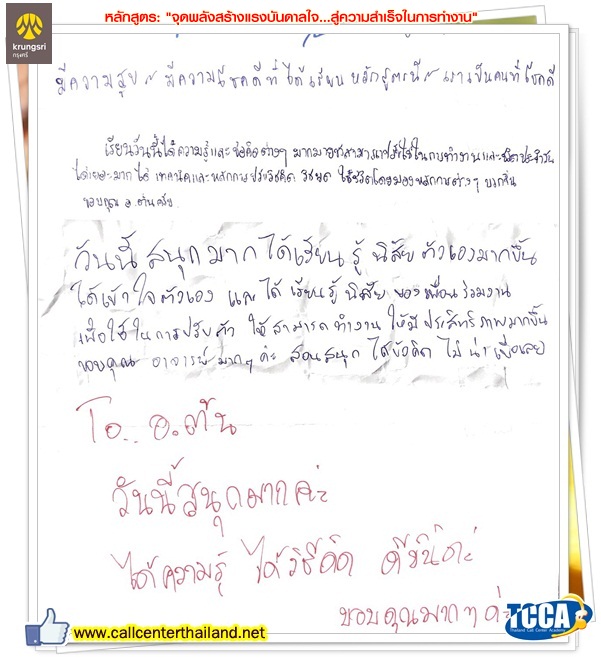 หลักสูตร: "จุดพลังสร้างแรงบันดาลใจ...สู่ความสำเร็จในการทำงาน"
krungsri
กรุงศรี
มีความสุข มีความโชคดีที่ได้เรียนหลักสูตรนี้ เราเป็นคนที่โชคดี
เรียนวันนี้ได้ความรู้และข้อคิดต่างๆ มากมาย สามารถนำไปใช้ในการทำงานและชีวิตประจำวัน
ได้เยอะมาก ได้เทคนิคและหลักการปรับวิธีคิด ใช้ชีวิตโดยมองหลักการต่างๆ มากขึ้น
ขอบคุณ อ.ต้นครับ
วันนี้สนุกมาก ได้เรียนรู้นิสัยตัวเองมากขึ้น
ได้เข้าใจตัวเอง และได้เรียนรู้นิสัยของเพื่อนร่วมงาน
เพื่อใช้ในการปรับตัว ให้สามารถทำงานให้มีประสิทธิภาพมากขึ้น
ขอบคุณ อาจารย์มากๆ ค่ะ สอนสนุก ได้ข้อคิด ไม่น่าเบื่อเลย
To.. อ.ต้น
วันนี้สนุกมากค่ะ
ได้ความรู้ ได้วิธีคิด ดีขึ้นค่ะ
ขอบคุณมากๆ ค่ะ
www.callcenterthailand.net
TCCA
Thailand Call Center Academy